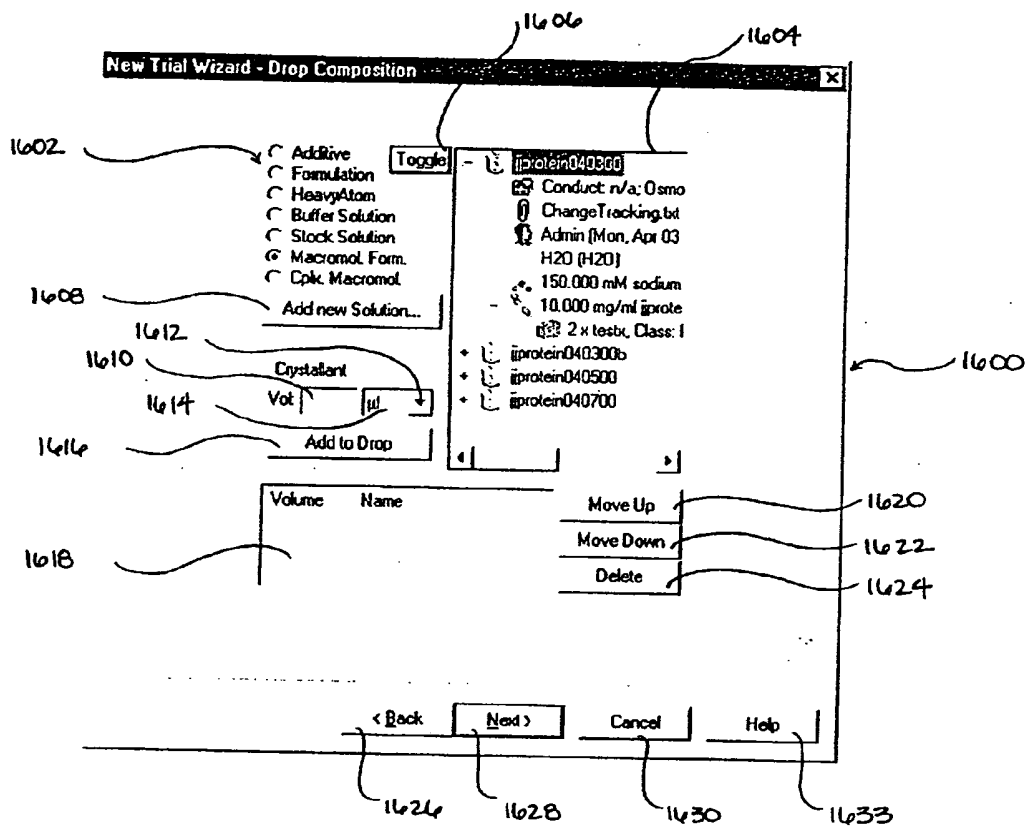 1606
1604
New Trial Wizard - Drop Composition
1602
Additive
Toggle
Formulation
HeavyAtom
Buffer Solution
Stock Solution
Macromol. Form.
Cplx. Macromol.
jjprotein040300
Conduct: n/a; Osmo
ChangeTracking.txt
Admin (Mon, Apr 03
H2O (H2O)
150.000 mM sodium
10.000 mg/ml jjprote
2 x testx, Class: I
jjprotein040300b
jjprotein040500
jjprotein040700
1608
Add new Solution...
1612
1610
Crystallant
1600
1614
Vol: µl
1616
Add to Drop
Volume Name
Move Up
1620
Move Down
1622
1618
Delete
1624
< Back
Next >
Cancel
Help
1626
1628
1630
1633